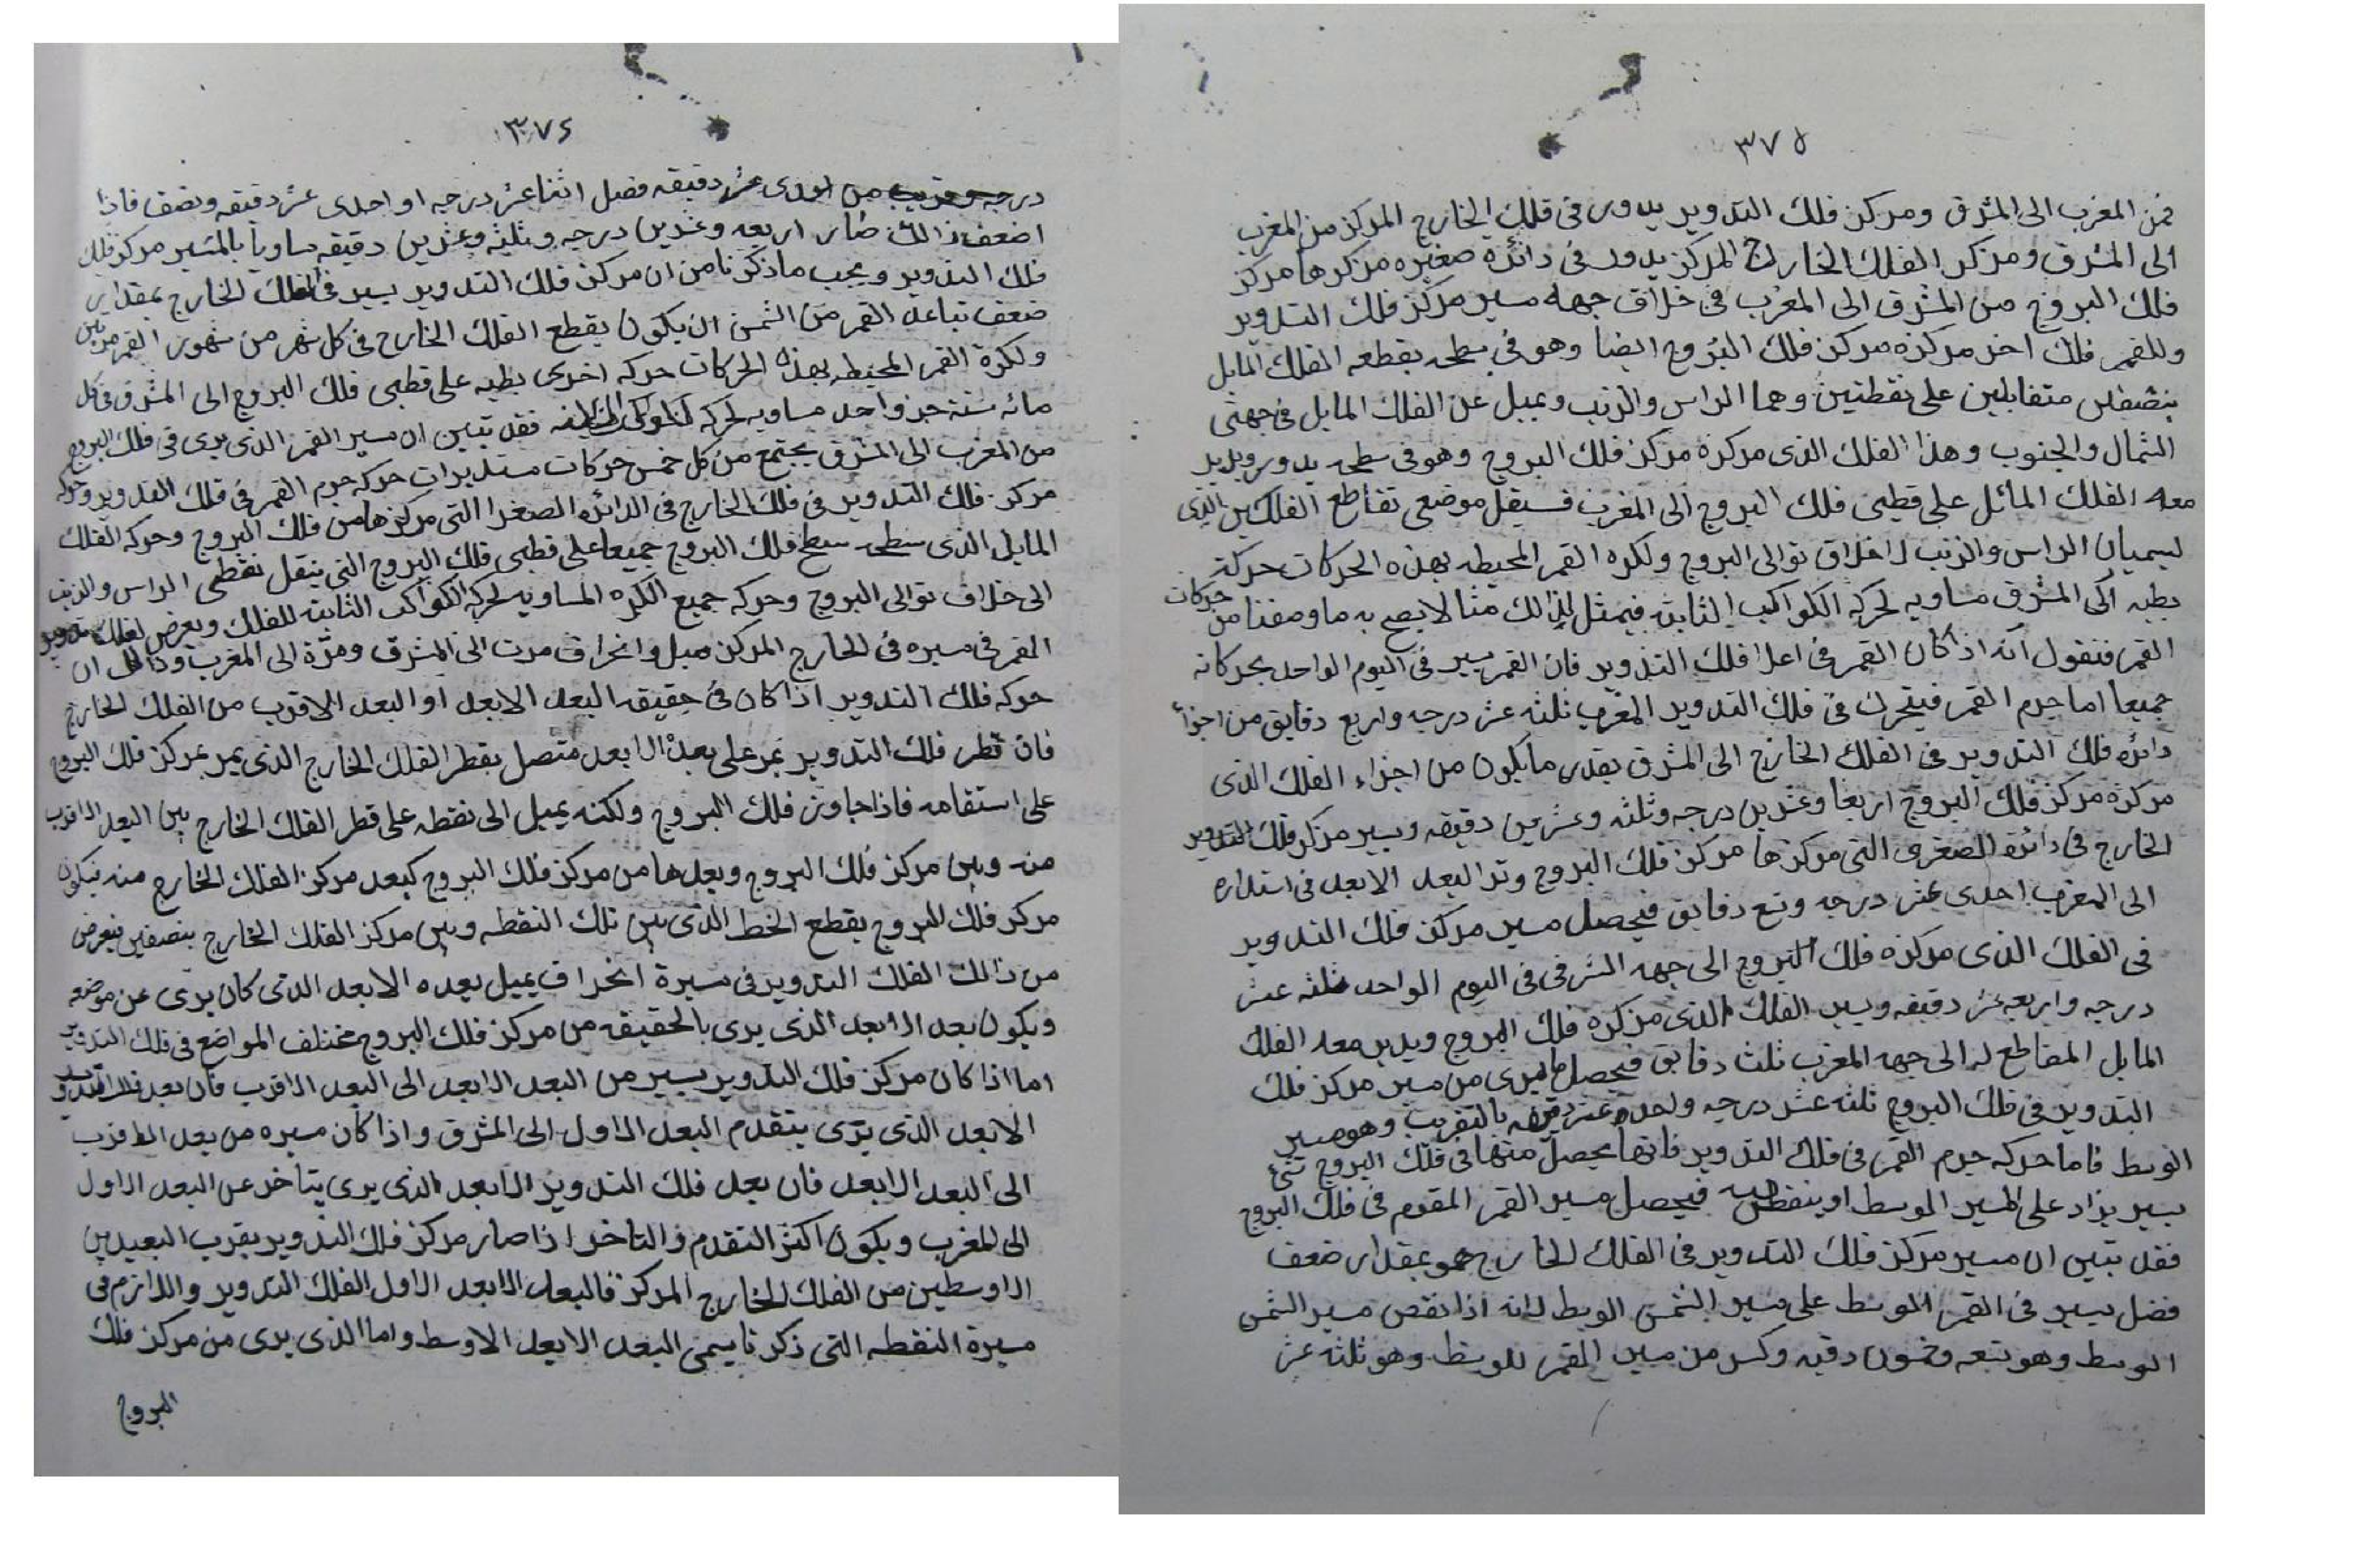 ٣٧٥
فمن المغرب الى المشرق ومركز فلك التدوير يدور فى فلك الخارج المركز من المغرب
الى المشرق ومركز الفلك الخارج المركز يدور فى دائرة صغيره مركزها مركز
فلك البروج من المشرق الى المغرب فى خلاف جهه مسير مركز فلك التدوير
وللقمر فلك اخر مركزه مركز فلك البروج ايضا وهو فى سطحه يقطعه الفلك المايل
بنصفين متقابلين على نقطتين وهما الراس والذنب ويميل عن الفلك المايل فى جهتى
الشمال والجنوب وهذا الفلك الذى مركزه مركز فلك البروج وهو فى سطحه يدور ويدير
معه الفلك المائل على قطبى فلك البروج الى المغرب فسيقل موضعى تقاطع الفلكين الذى
يسميان الراس والذنب لاخلاق توالى البروج ولكره القمر المحيطه بهذه الحركات حركة
بطيه الى المشرق مساويه لحركه الكواكب الثابته فيمثل لذالك مثالا يصح به ما وصفنا من حركات
القمر فنقول انه اذا كان القمر فى اعلا فلك التدوير فان القمر يسير فى اليوم الواحد بحركاته
جميعا اما جرم القمر فيتحرك فى فلك التدوير المغرب ثلثه عشر درجه واربع دقايق من اجزأ
دائره فلك التدوير فى الفلك الخارج الى المشرق بقدر ما يكون من اجزاء الفلك الذى
مركزه مركز فلك البروج اربعا وعشرين درجه وثلثه وعشرين دقيقه ويسير مركز فلك التدوير
الخارج فى دائرة الصغرى التى مركزها مركز فلك البروج وتر البعد الابعد فى استداره
الى المغرب احدى عشر درجه وتسع دقايق فيحصل مسير مركز فلك التدوير
فى الفلك الذى مركزه فلك البروج الى جهه الشرقى فى اليوم الواحد ثلثه عشر
درجه واربعه عشر دقيقه ويسير الفلك الذى مركزه فلك البروج ويدير معه الفلك
المايل المقاطع له الى جهه المغرب ثلث دقايق فيحصل ما يرى من مسير مركز فلك
التدوير فى فلك البروج ثلثه عشر درجه واحده عشر دقيقه بالتقريب وهو مسير
الوسط فاما حركه جرم القمر فى فلك التدوير فانها يحصل منها فى فلك البروج شئ
يسير يزاد على المسير الوسط او ينقص منه فيحصل مسير القمر المقوم فى فلك البروج
فقد تبين ان مسير مركز فلك التدوير فى الفلك الخارج هو بمقدار ضعف
فضل يسير فى القمر الوسط على مسير الشمس الوسط لانه اذا نقص مسير الشمس
الوسط وهو تسعه وخمسون دقيه وكسر من مسير القمر للوسط وهو ثلثه عشر
٣٧٤
درجه وقريب من احدى عشر دقيقه فضل اثنا عشر درجه او احدى عشر دقيقه ونصف فاذا
اضعف ذالك صار اربعه وعشرين درجه وثلثه وعشرين دقيقه مساويا بالمسير مركز فلك
فلك التدوير ويجب ما ذكرنا من ان مركز فلك التدوير يسير فى الفلك الخارج بمقدار
ضعف تباعد القمر من الشمس ان يكون يقطع الفلك الخارج فى كل شهر من شهور القمر مرتين
ولكرة القمر المحيطه بهذه الحركات حركه اخرى بطيه على قطبى فلك البروج الى المشرق فى كل
مائه سنة جز واحد مساويه لحركه الكواكب الثابته فقد تبين ان مسير القمر الذى يرى فى فلك البروج
من المغرب الى المشرق يجتمع من كل خمس حركات مستديرات حركه جرم القمر فى فلك التدوير وحركه
مركز فلك التدوير فى فلك الخارج فى الدائره الصغرا التى مركزها من فلك البروج وحركه الفلك
المايل الذى سطحه سطح فلك البروج جميعا على قطبى فلك البروج التى ينقل نقطتى الراس والذنب
الى خلاف توالى البروج وحركه جميع الكره المساويه لحركه الكواكب الثابته للفلك ويعرض لفلك تدوير
القمر فى مسيره فى الخارج المركز ميل وانحراف مرت الى المشرق ومرة الى المغرب وذالك ان
حركه فلك التدوير اذا كان فى حقيقه البعد الابعد او البعد الاقرب من الفلك الخارج
فان قطر فلك التدوير يمر على بعده الابعد متصل بقطر الفلك الخارج الذى يمر بمركز فلك البروج
على استقامه فاذا جاوز فلك البروج ولكنه يميل الى نقطه على قطر الفلك الخارج بين البعد الاقرب
منه وبين مركز فلك البروج وبعدها من مركز فلك البروج كبعد مركز الفلك الخارج منه فيكون
مركز فلك البروج يقطع الخط الذى بين تلك النقطه وبين مركز الفلك الخارج بنصفين فيعرض
من ذالك الفلك التدوير فى مسيرة انحراف يميل بعده الابعد الذى كان يرى عن موضعه
ويكون بعد الابعد الذى يرى بالحقيقه من مركز فلك البروج مختلف المواضع فى فلك التدوير
اما اذا كان مركز فلك التدوير يسير من البعد الابعد الى البعد الاقرب فان بعد فلك التدوير
الابعد الذى يرى يتقدم البعد الاول الى المشرق واذا كان مسيره من بعد الاقرب
الى البعد الابعد فان بعد فلك التدوير الابعد الذى يرى يتاخر عن البعد الاول
الى المغرب ويكون اكثر التقدم والتاخر اذا صار مركز فلك التدوير بقرب البعيدين
الاوسطين من الفلك الخارج المركز فالبعد الابعد الاول الفلك التدوير واللازم فى
مسيرة النقطه التى ذكرنا يسمى البعد الابعد الاوسط واما الذى يرى من مركز فلك
البروج